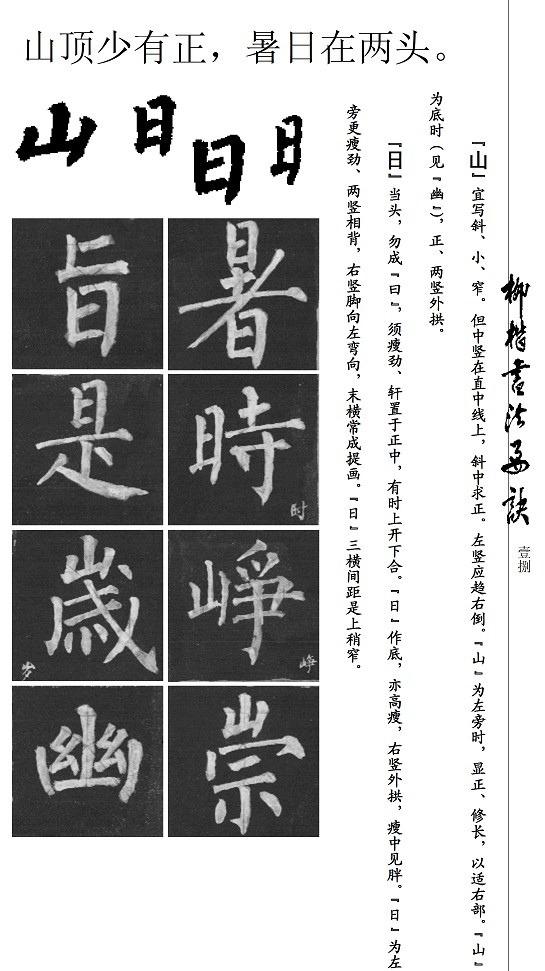 山顶少有正，暑日在两头。
山 日 日 日
『山』宜写斜、小、窄。但中竖在直中线上，斜中求正。左竖应趋右倒。『山』为左旁时，显正、修长，以适右部。『山』
为底时（见『幽』），正、两竖外拱。
『日』当头，勿成『曰』，须瘦劲、轩置于正中，有时上开下合。『日』作底，亦高瘦，右竖外拱，瘦中见胖。『日』为左
旁更瘦劲、两竖相背，右竖脚向左弯向，末横常成提画。『日』三横间距是上稍窄。
暑
時
时
崢
峥
崇
旨
是
歲
岁
幽
柳楷书法要诀
壹捌